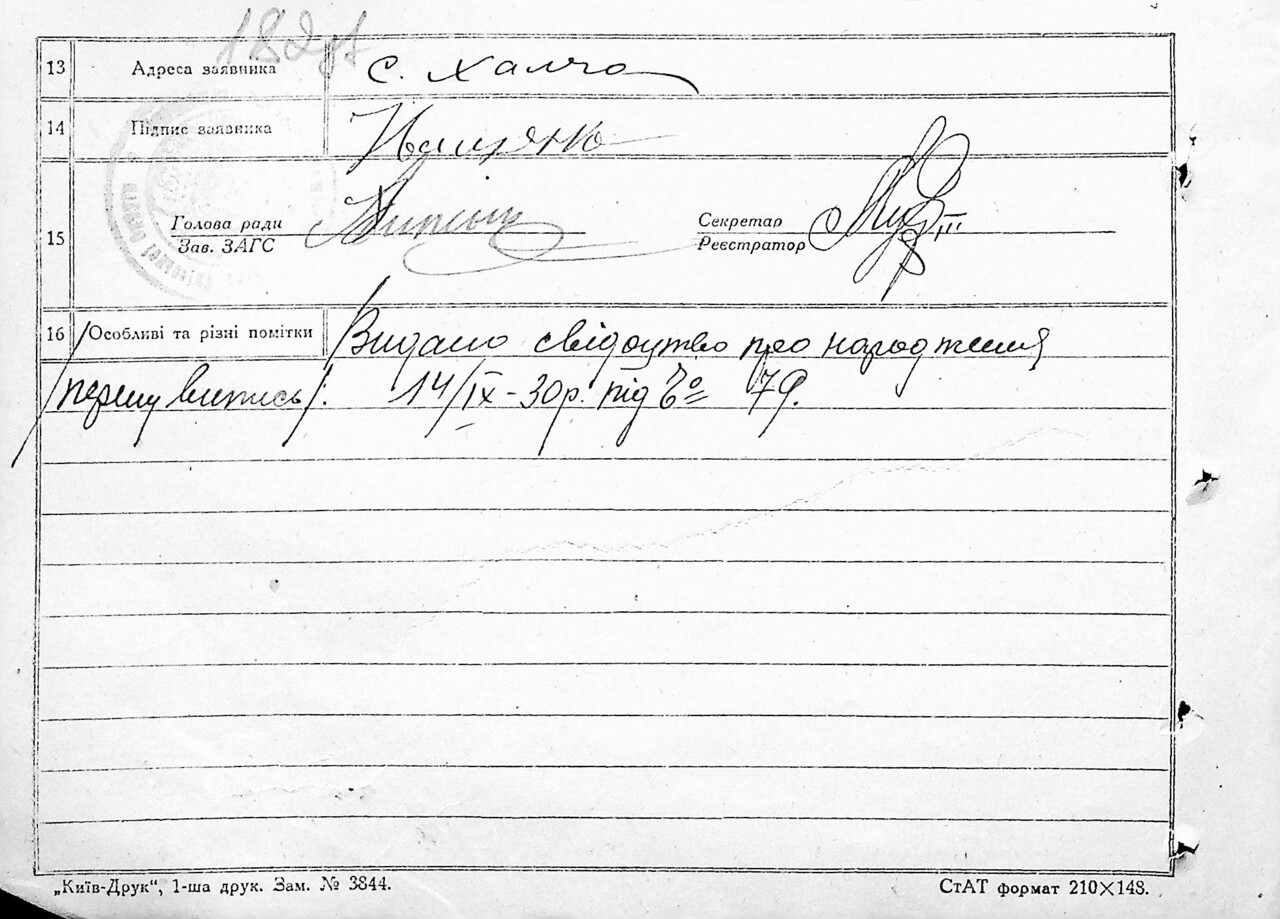 182
13 Адреса заявника с. Халча
14 Підпис заявника
15 Голова ради Секретар
Зав. ЗАГС Реєстратор
16 Особливі та різні помітки Видано свідоцтво про народження
/першу випись/: 14/IX-30р. під № 79.
„Київ-Друк“, 1-ша друк. Зам. № 3844. СтАТ формат 210×148.